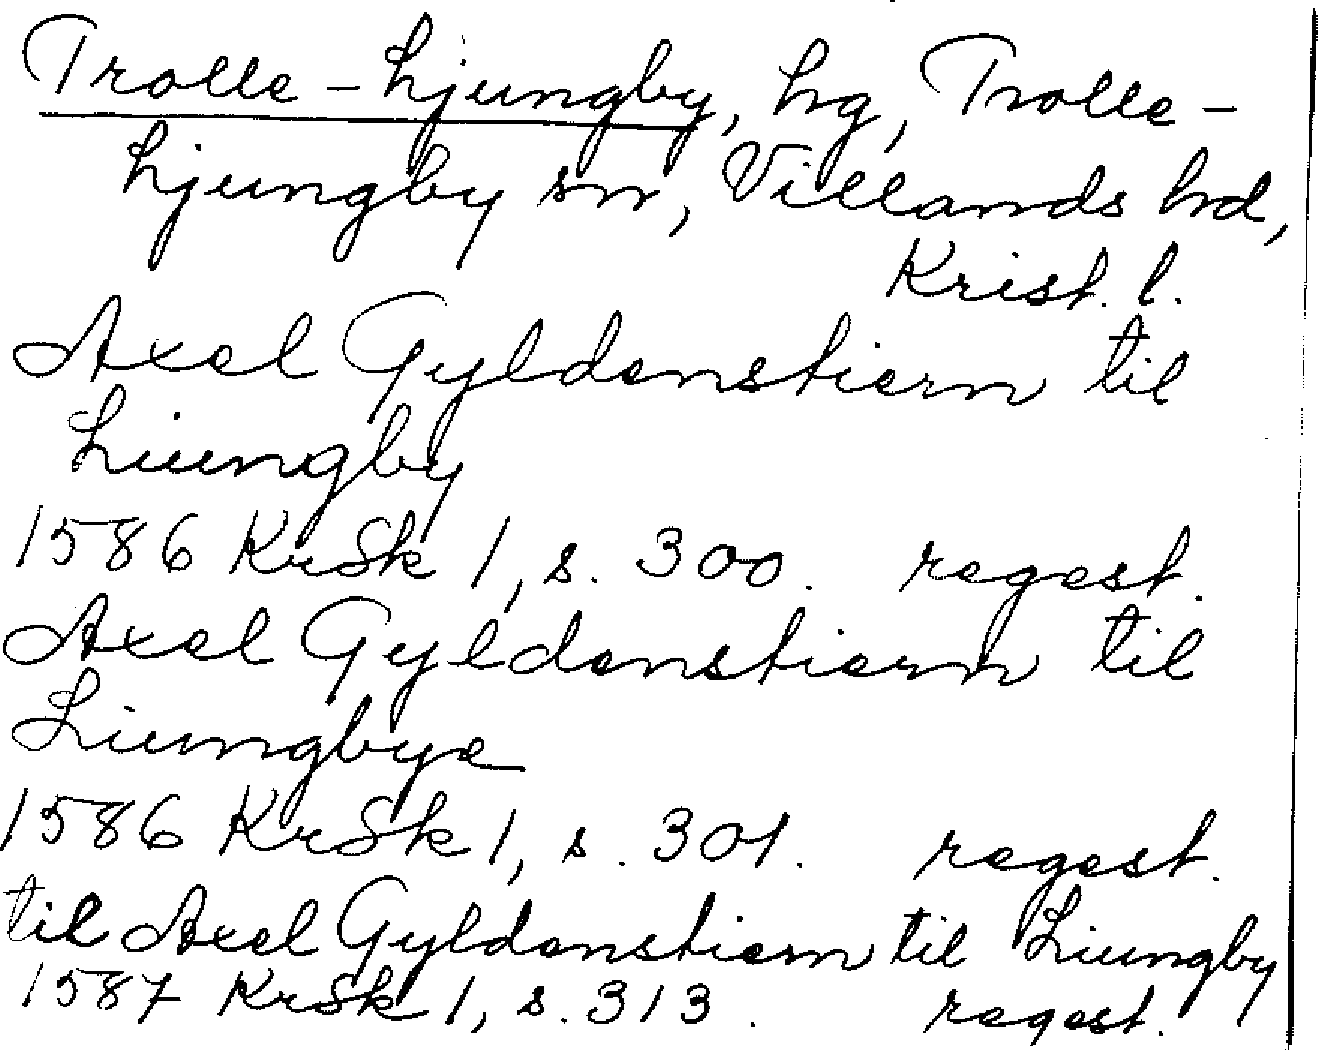 Trolle-Ljungby, hg, Trolle-
Ljungby sn, Villands hd,
Krist. l.
Axel Gyldenstiern til
Liungby
1586 KrSk 1, s. 300. regest.
Axel Gyldenstiern til
Liungbye
1586 KrSk 1, s. 301. regest.
til Axel Gyldenstiern til Liungby
1587 KrSk 1, s. 313. regest.